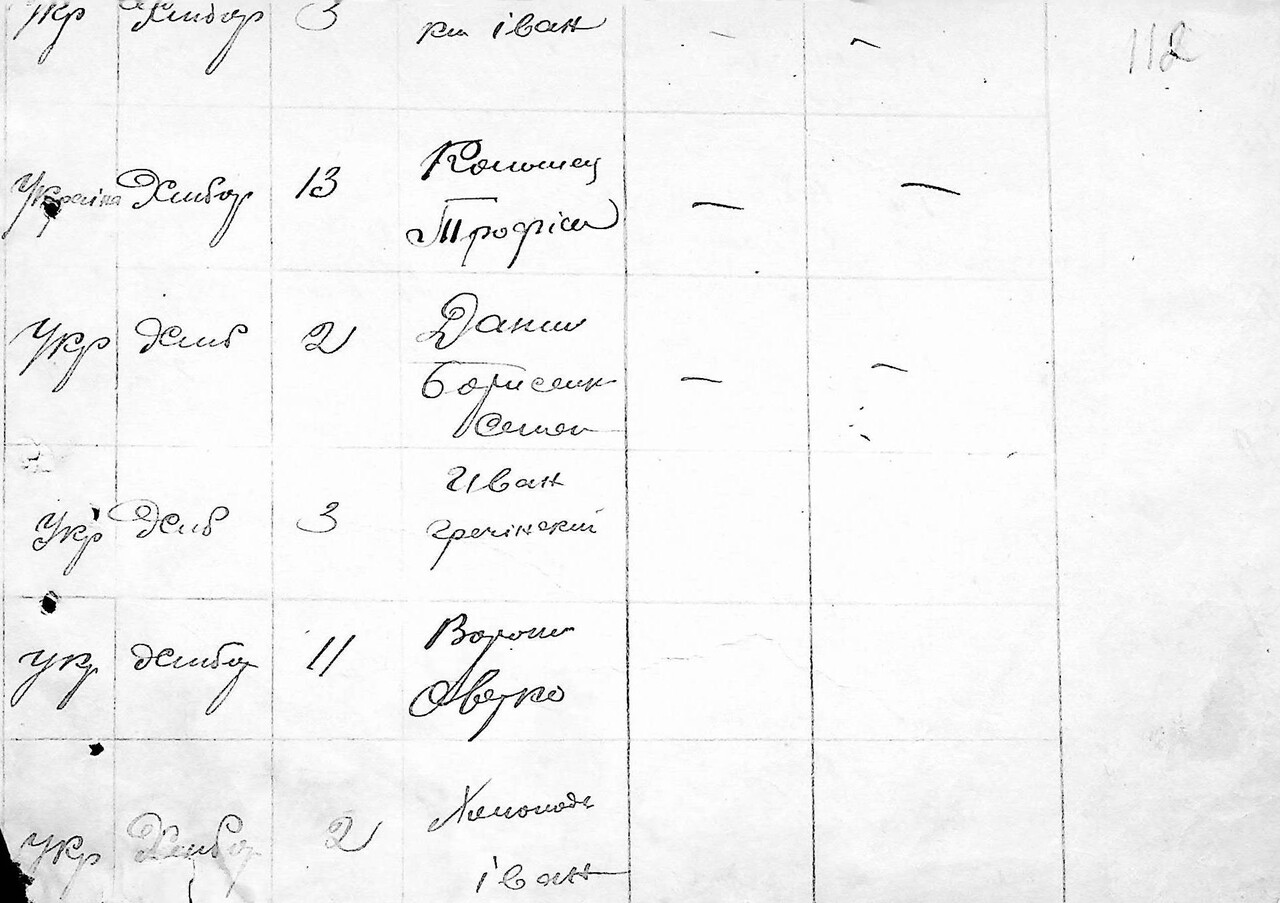 Укр Хлібор 3 іван
112
Україна Хлібор 13 Коломец
Трофім
Укр Хліб 2 Данило
Борисенк
Семен
Укр Хліб 3 Иван
гречінский
укр Хлибор 11
Аверко
укр Хлибор 2
іван